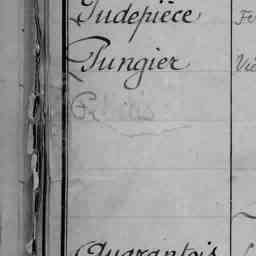 Pudepièce Fe
Pungier Vic
Quarantois